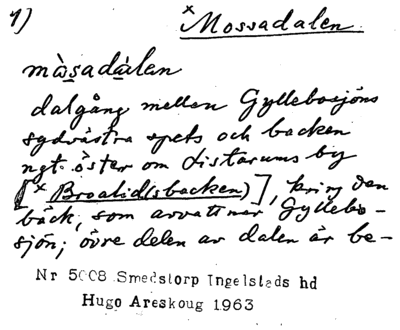 1) × Mossadalen
màsadàlen
dalgång mellan Gyllebosjöns
sydvästra spets och backen
ngt öster om Listarums by
[× Broalid(sbacken)], kring den
bäck, som avvattnar Gyllebo-
sjön; övre delen av dalen är be-
Nr 5008 Smedstorp Ingelsteds hd
Hugo Areskoug 1963